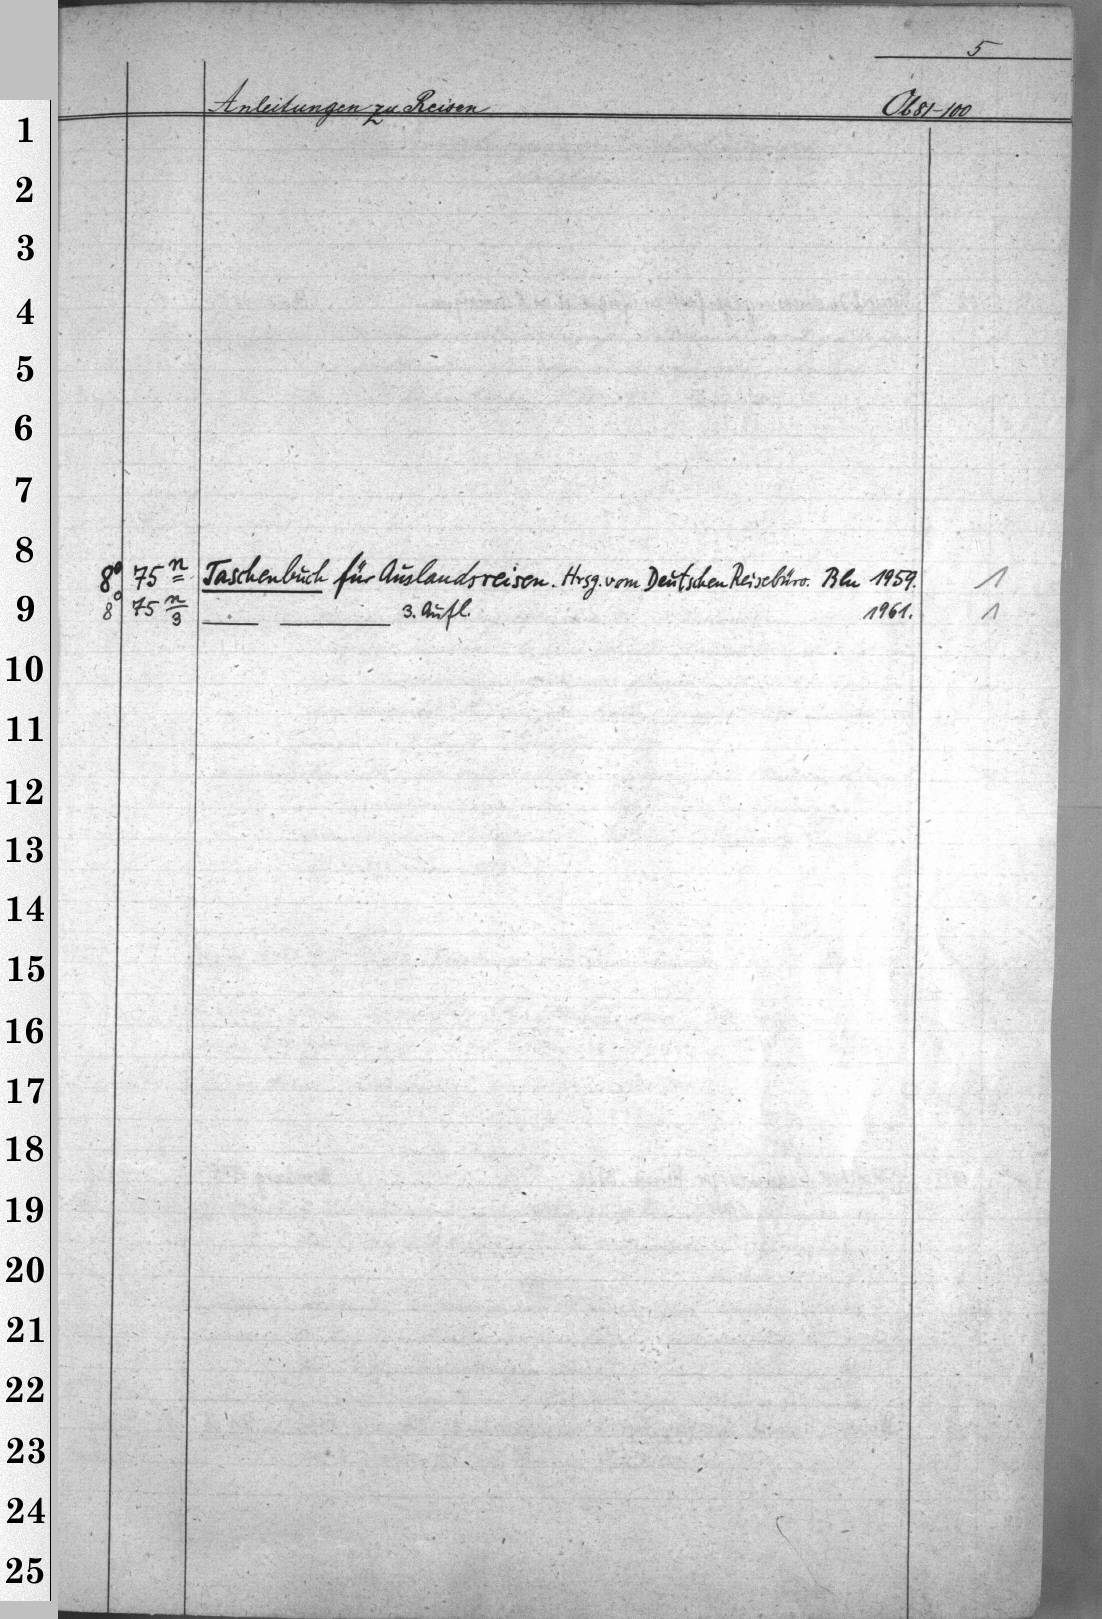 5
Anleitungen zu Reisen Ob 81-100
1
2
3
4
5
6
7
8
8° 75 n Taschenbuch für Auslandsreisen. Hrsg. vom Deutschen Reisebüro. Bln 1959. 1
9
8° 75 n/3 — — 3. Aufl. 1961. 1
10
11
12
13
14
15
16
17
18
19
20
21
22
23
24
25